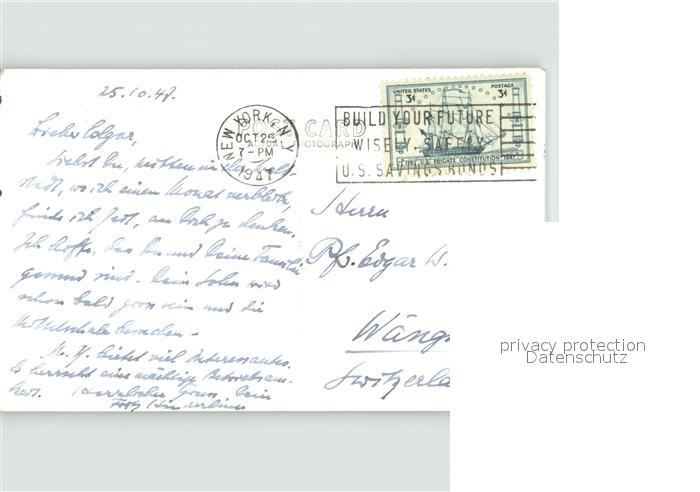 25.10.47.
Lieber Edgar,
Siehst Du, mitten in der Welt-
stadt, wo ich einen Monat verbleib,
finde ich Zeit, an Dich zu denken.
Ich hoffe, dass Du und Deine Familie
gesund sind. Dein Sohn wird
schon bald gross sein und die
Mittelschule besuchen.
N. Y. bietet viel Interessantes.
Es herrscht eine mächtige Betriebsam-
keit. Herzlichen Gruss, Dein
Fritz
POST CARD
ACTUAL PHOTOGRAPH
NEW YORK, N.Y.
OCT 25
7-PM
1947
BUILD YOUR FUTURE
WISELY. SAFELY
U.S. SAVINGS BONDS
UNITED STATES POSTAGE
3¢ 3¢
1797 U.S. FRIGATE CONSTITUTION 1947
Herrn
Pf. Edgar W.
Wäng
Switzerla
privacy protection
Datenschutz